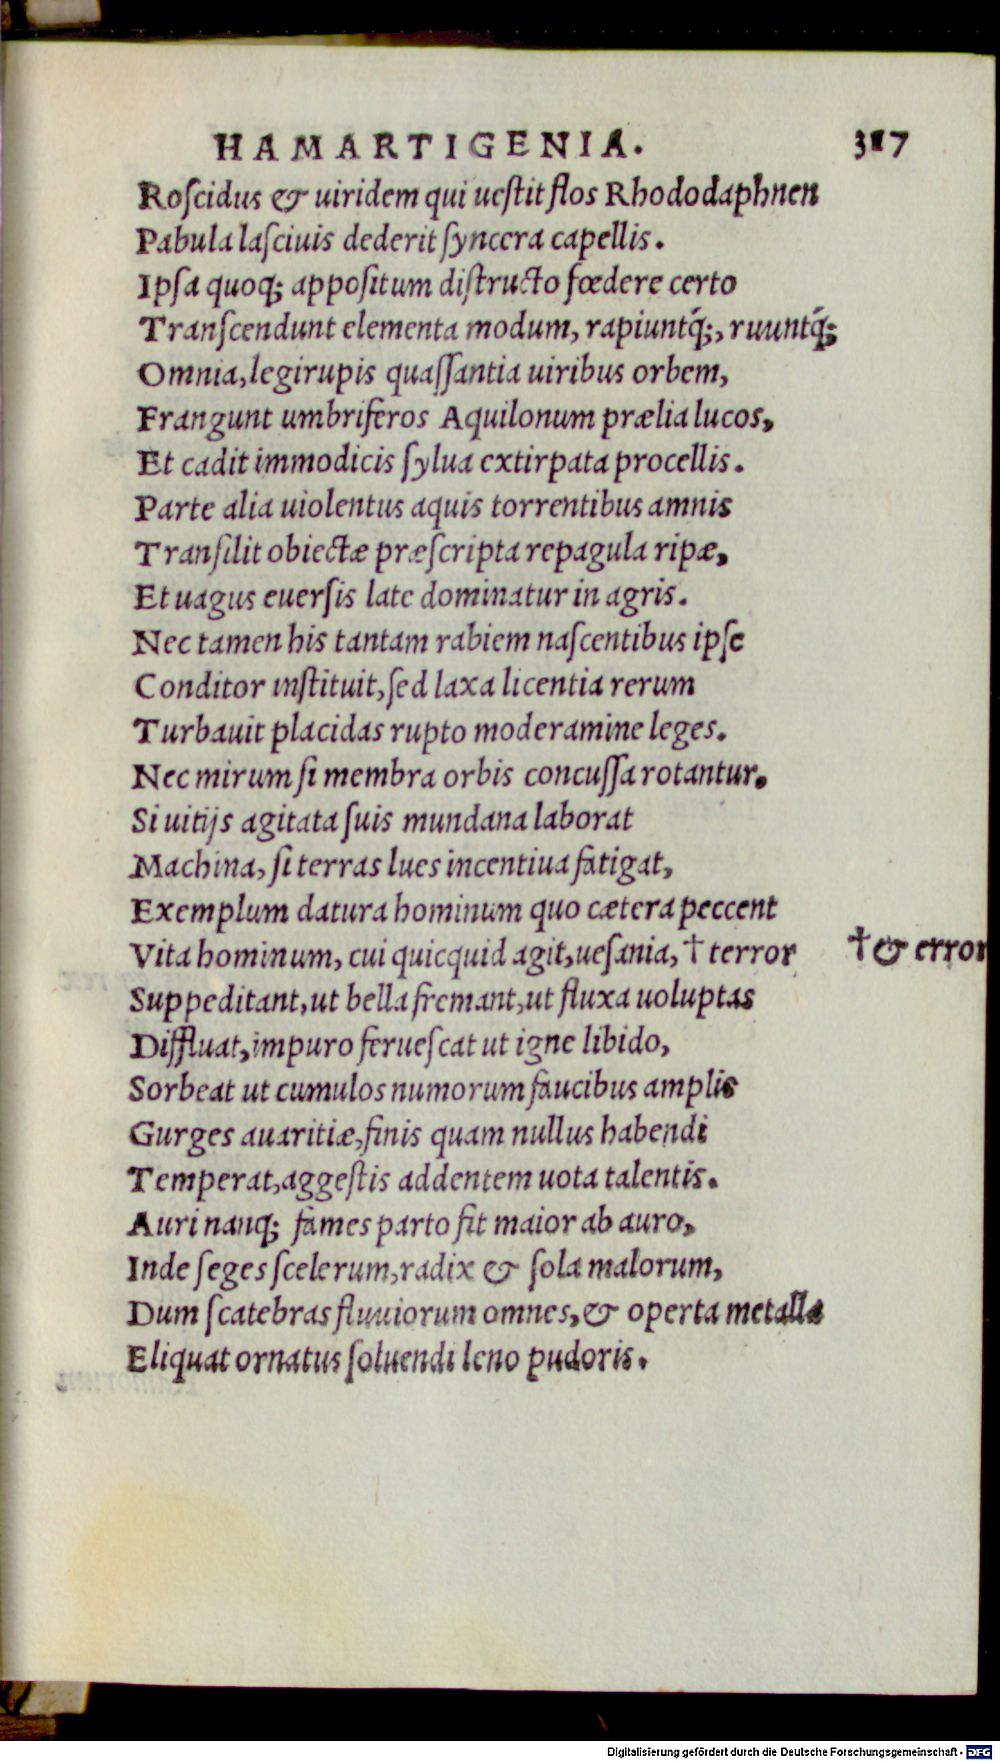 HAMARTIGENIA. 317
Roſcidus & uiridem qui ueſtit flos Rhododaphnen
Pabula laſciuis dederit ſyncera capellis.
Ipſa quoq; appoſitum diſtructo fœdere certo
Tranſcendunt elementa modum, rapiuntq́;, ruuntq́;
Omnia, legirupis quaſſantia uiribus orbem,
Frangunt umbriferos Aquilonum prælia lucos,
Et cadit immodicis ſylua extirpata procellis.
Parte alia uiolentus aquis torrentibus amnis
Tranſilit obiectæ præſcripta repagula ripæ,
Et uagus euerſis late dominatur in agris.
Nec tamen his tantam rabiem naſcentibus ipſe
Conditor inſtituit, ſed laxa licentia rerum
Turbauit placidas rupto moderamine leges.
Nec mirum ſi membra orbis concuſſa rotantur.
Si uitijs agitata ſuis mundana laborat
Machina, ſi terras lues incentiua fatigat,
Exemplum datura hominum quo cætera peccent
Vita hominum, cui quicquid agit, ueſania, † terror † & error
Suppeditant, ut bella fremant, ut fluxa uoluptas
Diffluat, impuro ferueſcat ut igne libido,
Sorbeat ut cumulos numorum faucibus amplis
Gurges auaritiæ, finis quam nullus habendi
Temperat, aggeſtis addentem uota talentis.
Auri nanq; fames parto fit maior ab auro,
Inde ſeges ſcelerum, radix & ſola malorum,
Dum ſcatebras fluuiorum omnes, & operta metalla
Eliquat ornatus ſoluendi leno pudoris.
Digitalisierung gefördert durch die Deutsche Forschungsgemeinschaft - DFG